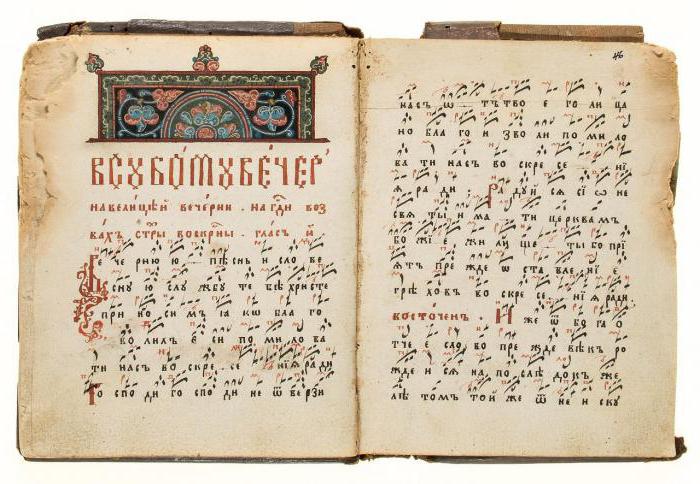 ВСУБО́ТУВЕ́ЧЕР
НАВЕЛИЦѢЙ ВЕЧЕ́РНИ . НА ГДИ ВОЗ
ВА́ХЪ СТРЫ ВОСКРНЫ . ГЛАСЪ И҃
Ве че рнюю пѣснь и сло ве
сную слу жбу те бѣ христе
при но си мъ ꙗкѡ бла го
во лилъ е си по ми ло ва
ти насъ во скре се нїѧ ради
Го спо ди го спо ди не ѿ ве рзи
46
насъ ѡ тътво е го ли ца
но бла го и зво ли по ми ло
ва ти насъ во скре се нї
ѧ ра ди Ра дуй сѧ сїѡ не
свѧ ты и ма ти церквамъ
бо жї е жи ли ще ты бо прї
ѧтъ пре жде ѡ ста вле нї е
грѣ ховъ во скре се нї ѧ ради
ВОСТОЧЕНЪ . И же ѿ бо га о
тче е сло во пре жде вѣкъ ро
жде и сѧ на по слѣ докъ же
лѣ томъ той же ѿ не и ску